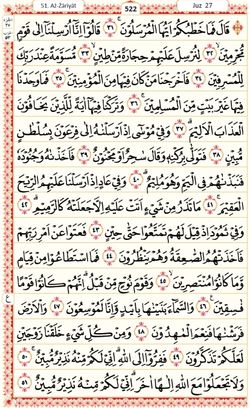 51. Aż-Żâriyât
522
Juz 27
قَالَ فَمَا خَطْبُكُمْ اَيُّهَا الْمُرْسَلُوْنَ ٣١ قَالُوْٓا اِنَّآ اُرْسِلْنَآ اِلٰى قَوْمٍ
مُّجْرِمِيْنَ ٣٢ لِنُرْسِلَ عَلَيْهِمْ حِجَارَةً مِّنْ طِيْنٍ ٣٣ مُّسَوَّمَةً عِنْدَ رَبِّكَ
لِلْمُسْرِفِيْنَ ٣٤ فَاَخْرَجْنَا مَنْ كَانَ فِيْهَا مِنَ الْمُؤْمِنِيْنَ ٣٥ فَمَا وَجَدْنَا
فِيْهَا غَيْرَ بَيْتٍ مِّنَ الْمُسْلِمِيْنَ ٣٦ وَتَرَكْنَا فِيْهَآ اٰيَةً لِّلَّذِيْنَ يَخَافُوْنَ
الْعَذَابَ الْاَلِيْمَ ٣٧ وَفِيْ مُوْسٰٓى اِذْ اَرْسَلْنٰهُ اِلٰى فِرْعَوْنَ بِسُلْطٰنٍ
مُّبِيْنٍ ٣٨ فَتَوَلّٰى بِرُكْنِهٖ وَقَالَ سٰحِرٌ اَوْ مَجْنُوْنٌ ٣٩ فَاَخَذْنٰهُ وَجُنُوْدَهٗ
فَنَبَذْنٰهُمْ فِى الْيَمِّ وَهُوَ مُلِيْمٌ ٤٠ وَفِيْ عَادٍ اِذْ اَرْسَلْنَا عَلَيْهِمُ الرِّيْحَ
الْعَقِيْمَ ٤١ مَا تَذَرُ مِنْ شَيْءٍ اَتَتْ عَلَيْهِ اِلَّا جَعَلَتْهُ كَالرَّمِيْمِ ٤٢
وَفِيْ ثَمُوْدَ اِذْ قِيْلَ لَهُمْ تَمَتَّعُوْا حَتّٰى حِيْنٍ ٤٣ فَعَتَوْا عَنْ اَمْرِ رَبِّهِمْ
فَاَخَذَتْهُمُ الصّٰعِقَةُ وَهُمْ يَنْظُرُوْنَ ٤٤ فَمَا اسْتَطَاعُوْا مِنْ قِيَامٍ
وَّمَا كَانُوْا مُنْتَصِرِيْنَ ٤٥ وَقَوْمَ نُوْحٍ مِّنْ قَبْلُ اِنَّهُمْ كَانُوْا قَوْمًا
فٰسِقِيْنَ ٤٦ وَالسَّمَآءَ بَنَيْنٰهَا بِاَيْىدٍ وَّاِنَّا لَمُوْسِعُوْنَ ٤٧ وَالْاَرْضَ
فَرَشْنٰهَا فَنِعْمَ الْمٰهِدُوْنَ ٤٨ وَمِنْ كُلِّ شَيْءٍ خَلَقْنَا زَوْجَيْنِ
لَعَلَّكُمْ تَذَكَّرُوْنَ ٤٩ فَفِرُّوْٓا اِلَى اللّٰهِ اِنِّيْ لَكُمْ مِّنْهُ نَذِيْرٌ مُّبِيْنٌ ٥٠
وَلَا تَجْعَلُوْا مَعَ اللّٰهِ اِلٰهًا اٰخَرَ اِنِّيْ لَكُمْ مِّنْهُ نَذِيْرٌ مُّبِيْنٌ ٥١